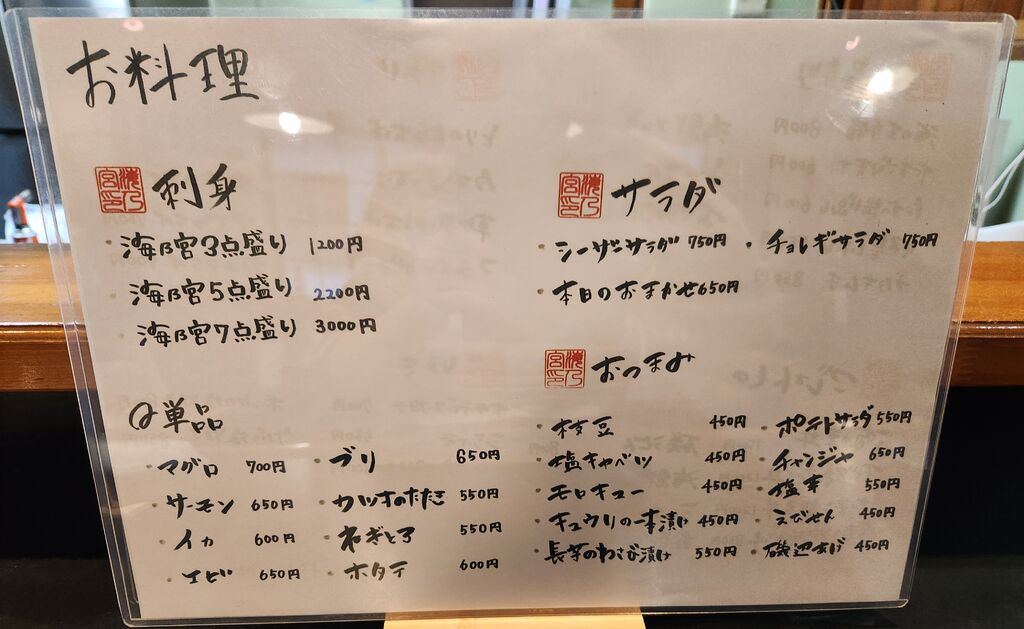 お料理
刺身
・海乃宮3点盛り 1200円
・海乃宮5点盛り 2200円
・海乃宮7点盛り 3000円
単品
・マグロ 700円
・サーモン 650円
・イカ 600円
・エビ 650円
・ブリ 650円
・カツオのたたき 550円
・ネギトロ 550円
・ホタテ 600円
サラダ
・シーザーサラダ 750円
・チョレギサラダ 750円
・本日のおまかせ 650円
おつまみ
・枝豆 450円
・塩キャベツ 450円
・モロキュー 450円
・キュウリの一本漬け 450円
・長芋のわさび漬け 550円
・ポテトサラダ 550円
・チャンジャ 650円
・塩辛 550円
・えびせん 450円
・磯辺あげ 450円